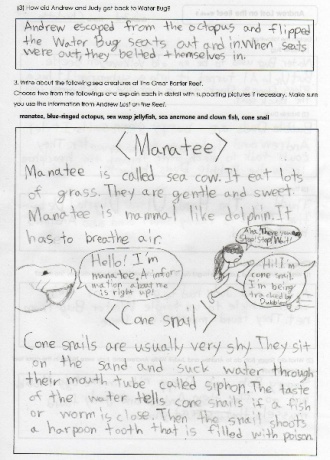 (3) How did Andrew and Judy get back to Water Bug?
Andrew escaped from the octopus and flipped
the Water Bug seats out and in. When seats
were out, they belted themselves in.
3. Write about the following sea creatures at the Great Barrier Reef.
Choose two from the followings and explain each in detail with supporting pictures if necessary. Make sure
you use the information from Andrew Lost on the Reef.
manatee, blue-ringed octopus, sea wasp jellyfish, sea anemone and clown fish, cone snail
<Manatee>
Manatee is called sea cow. It eat lots
of grass. They are gentle and sweet.
Manatee is mammal like dolphin. It
has to breathe air.
Aha! There you
Stop! Stop! Wait!
Hello! I'm
manatee. A infor
mation about me
is right up!
Hi! I'm
cone snail
I'm being
by
<Cone snail>
Cone snails are usually very shy. They sit
on the sand and suck water through
their mouth tube called siphon. The taste
of the water tells cone snails if a fish
or worm is close. Then the snail shoots
a harpoon tooth that is filled with poison.